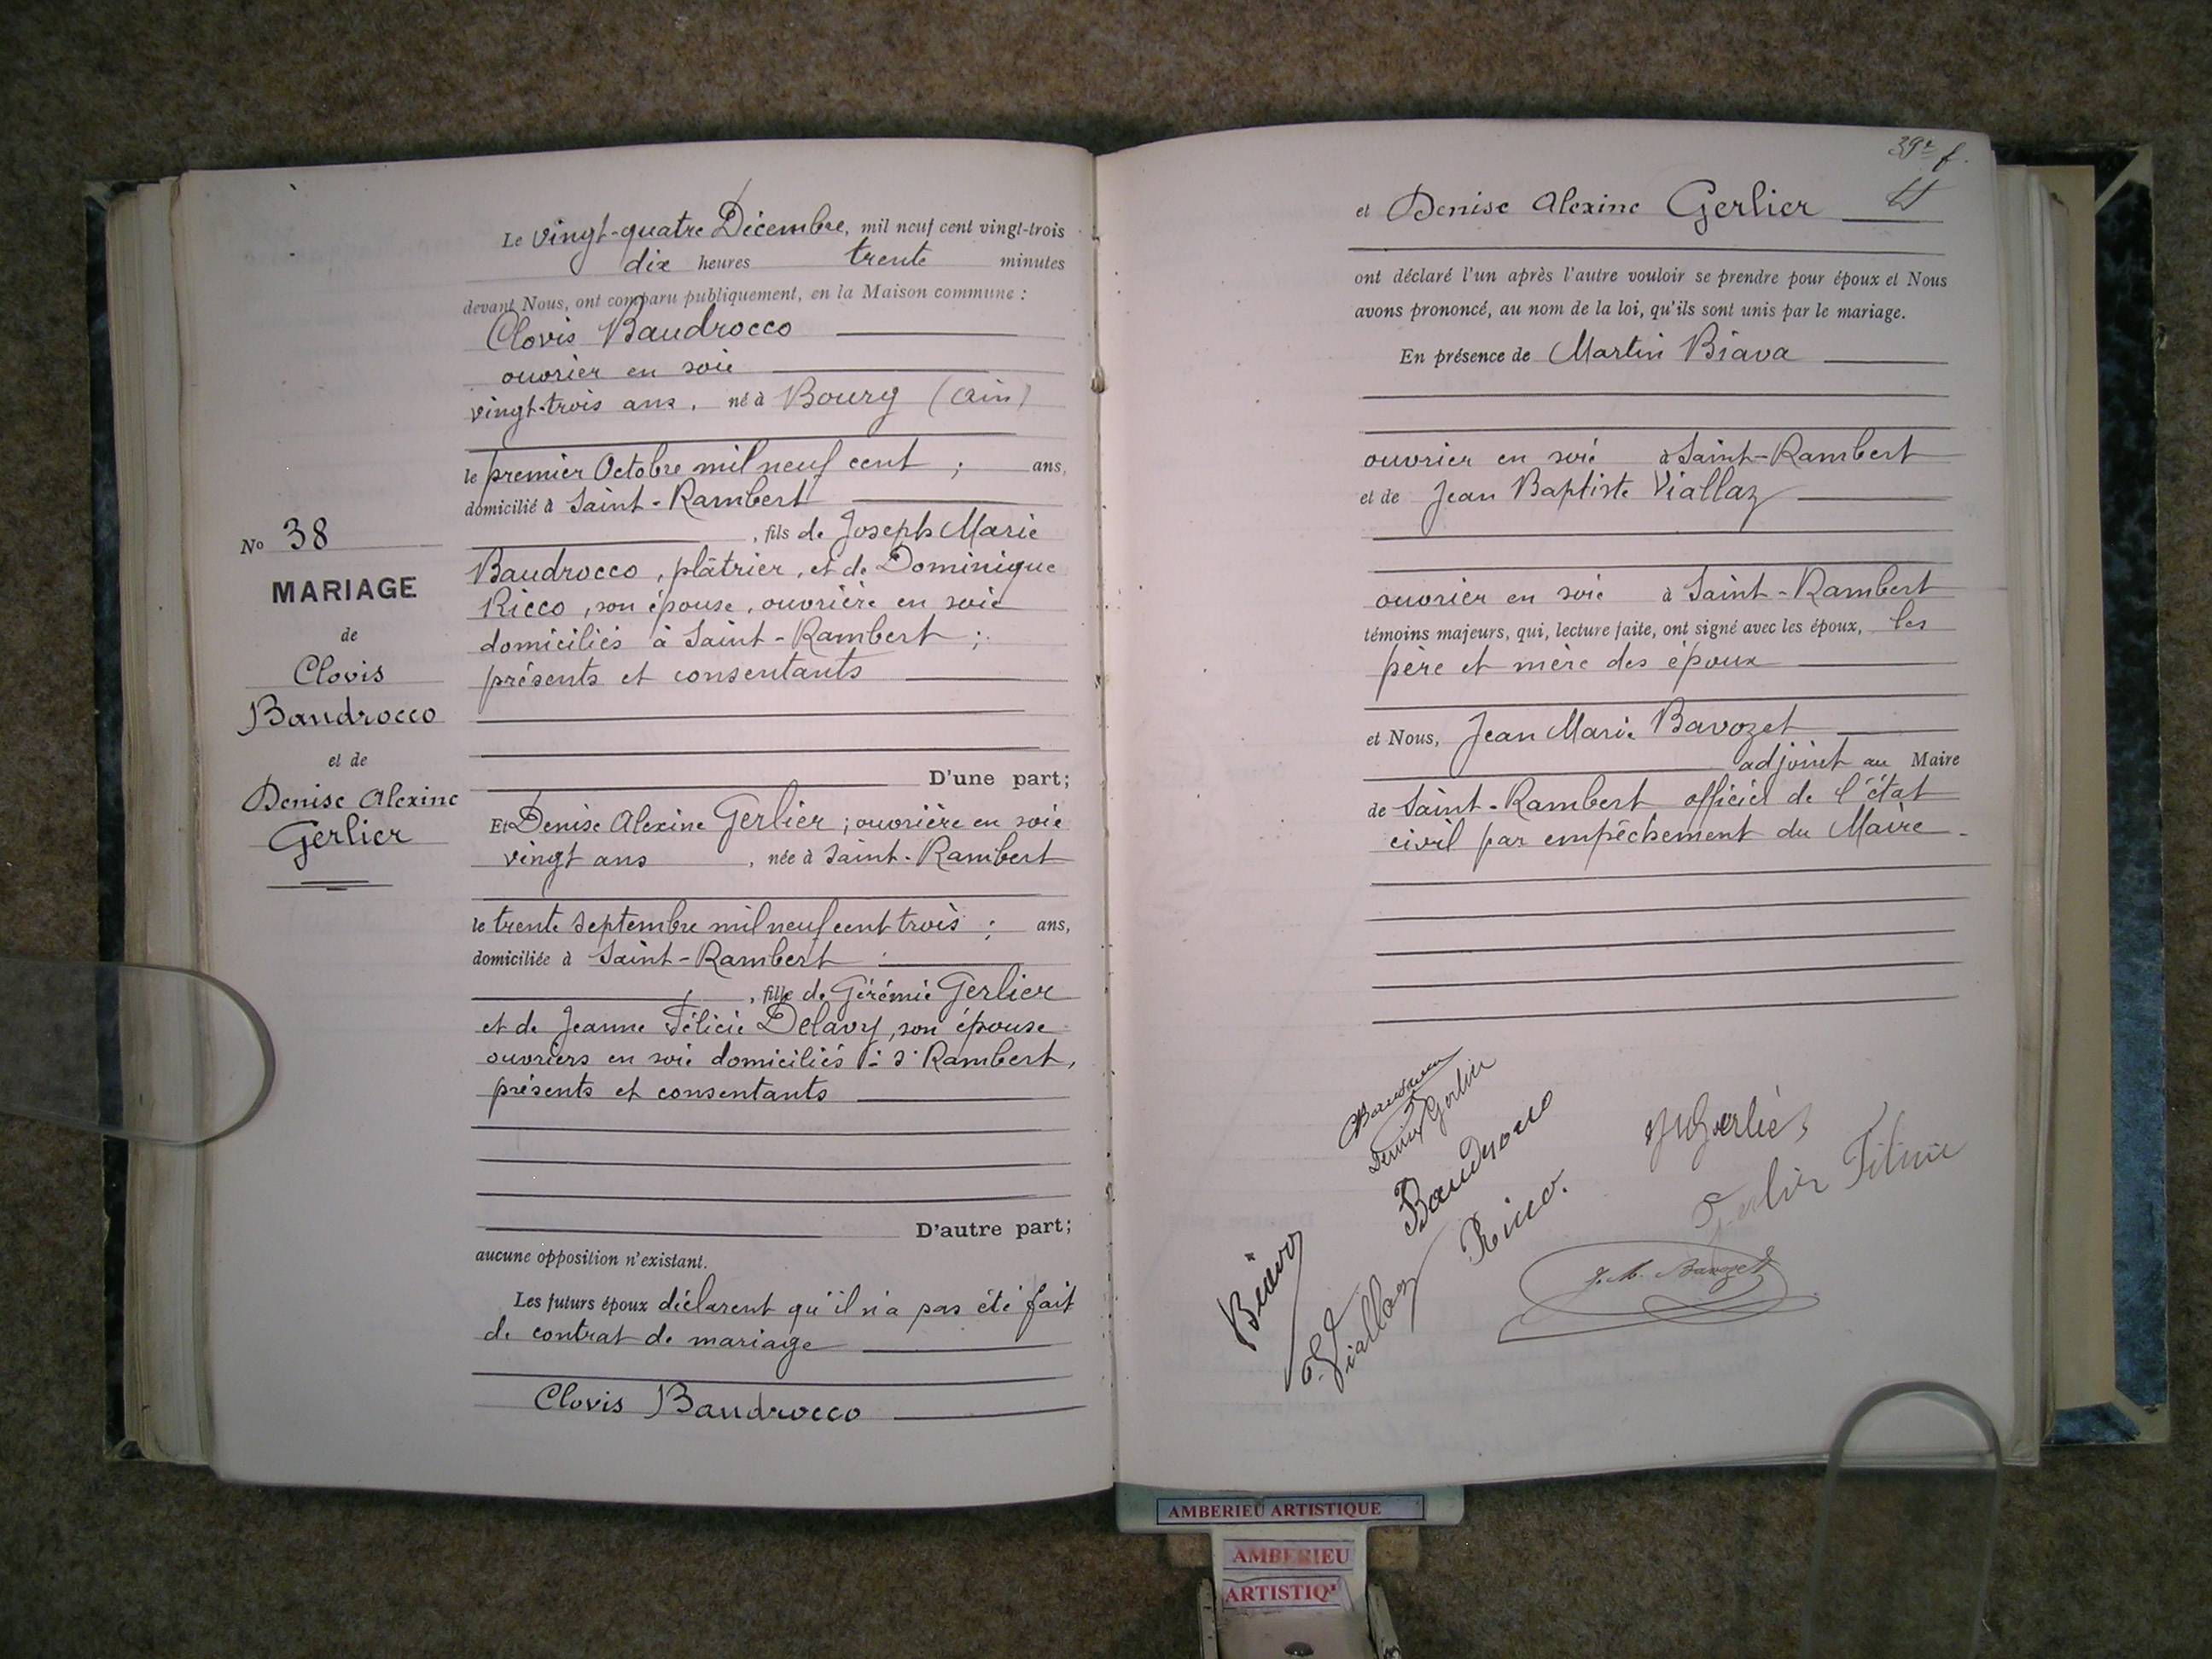 No 38
MARIAGE
de
Clovis
Baudrocco
et de
Denise Alexine
Gerlier
Le vingt-quatre Décembre, mil neuf cent vingt-trois
dix heures trente minutes
devant Nous, ont comparu publiquement, en la Maison commune :
Clovis Baudrocco
ouvrier en soie
vingt-trois ans, né à Bourg (Ain)
le premier Octobre mil neuf cent ; ans,
domicilié à Saint-Rambert
, fils de Joseph Marie
Baudrocco, plâtrier, et de Dominique
Ricco, son épouse, ouvrière en soie
domiciliés à Saint-Rambert ;
présents et consentants
D'une part;
Et Denise Alexine Gerlier ; ouvrière en soie
vingt ans , née à Saint-Rambert
le trente Septembre mil neuf cent trois ; ans,
domiciliée à Saint-Rambert
, fille de Gérémie Gerlier
et de Jeanne Félicie Delavy, son épouse
ouvriers en soie domiciliés à St Rambert,
présents et consentants
D'autre part;
aucune opposition n'existant.
Les futurs époux déclarent qu'il n'a pas été fait
de contrat de mariage
Clovis Baudrocco
39e f.
et Denise Alexine Gerlier
ont déclaré l'un après l'autre vouloir se prendre pour époux et Nous
avons prononcé, au nom de la loi, qu'ils sont unis par le mariage.
En présence de Martin Biava
ouvrier en soie à Saint-Rambert
et de Jean Baptiste Viallaz
ouvrier en soie à Saint-Rambert
témoins majeurs, qui, lecture faite, ont signé avec les époux, les
père et mère des époux
et Nous, Jean Marie Bavozet
adjoint au Maire
de Saint-Rambert officiel de l'état
civil par empêchement du Maire
Denise Gerlier
Baudrocco
Ricco.
Gerlier Félicie
Biava
Viallaz
J. M. Bavozet
AMBERIEU ARTISTIQUE
AMBERIEU
ARTISTIQ